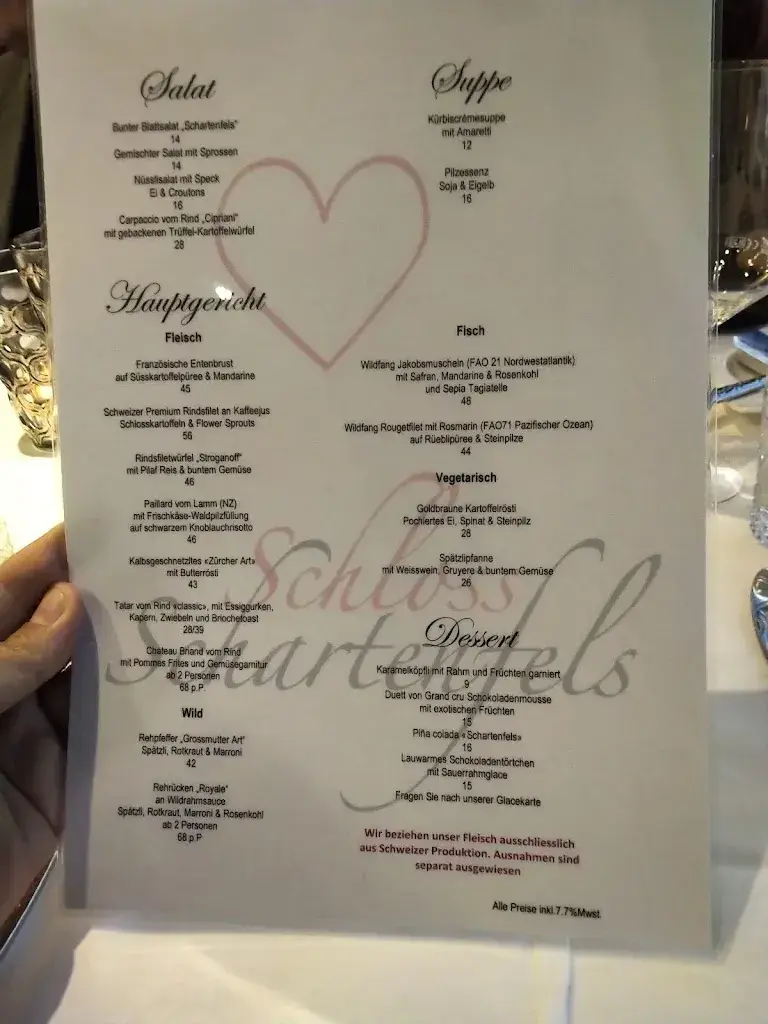 Salat
Bunter Blattsalat „Schartenfels"
14
Gemischter Salat mit Sprossen
14
Nüsslisalat mit Speck
Ei & Croutons
16
Carpaccio vom Rind „Cipriani"
mit gebackenen Trüffel-Kartoffelwürfel
28
Suppe
Kürbiscrèmesuppe
mit Amaretti
12
Pilzessenz
Soja & Eigelb
16
Hauptgericht
Fleisch
Französische Entenbrust
auf Süsskartoffelpüree & Mandarine
45
Schweizer Premium Rindsfilet an Kaffeejus
Schlosskartoffeln & Flower Sprouts
56
Rindsfiletwürfel „Stroganoff"
mit Pilaf Reis & buntem Gemüse
46
Paillard vom Lamm (NZ)
mit Frischkäse-Waldpilzfüllung
auf schwarzem Knoblauchrisotto
46
Kalbsgeschnetzltes «Zürcher Art»
mit Butterrösti
43
Tatar vom Rind «classic», mit Essiggurken,
Kapern, Zwiebeln und Briochetoast
28/39
Chateau Briand vom Rind
mit Pommes Frites und Gemüsegarnitur
ab 2 Personen
68 p.P.
Wild
Rehpfeffer „Grossmutter Art"
Spätzli, Rotkraut & Marroni
42
Rehrücken „Royale"
an Wildrahmsauce
Spätzli, Rotkraut, Marroni & Rosenkohl
ab 2 Personen
68 p.P
Fisch
Wildfang Jakobsmuscheln (FAO 21 Nordwestatlantik)
mit Safran, Mandarine & Rosenkohl
und Sepia Tagiatelle
48
Wildfang Rougetfilet mit Rosmarin (FAO71 Pazifischer Ozean)
auf Rüeblipüree & Steinpilze
44
Vegetarisch
Goldbraune Kartoffelrösti
Pochiertes Ei, Spinat & Steinpilz
28
Spätzlipfanne
mit Weisswein, Gruyere & buntem Gemüse
26
Schloss
Schartenfels
Dessert
Karamelköpfli mit Rahm und Früchten garniert
9
Duett von Grand cru Schokoladenmousse
mit exotischen Früchten
15
Piña colada «Schartenfels»
16
Lauwarmes Schokoladentörtchen
mit Sauerrahmglace
15
Fragen Sie nach unserer Glacekarte
Wir beziehen unser Fleisch ausschliesslich
aus Schweizer Produktion. Ausnahmen sind
separat ausgewiesen
Alle Preise inkl.7.7%Mwst.